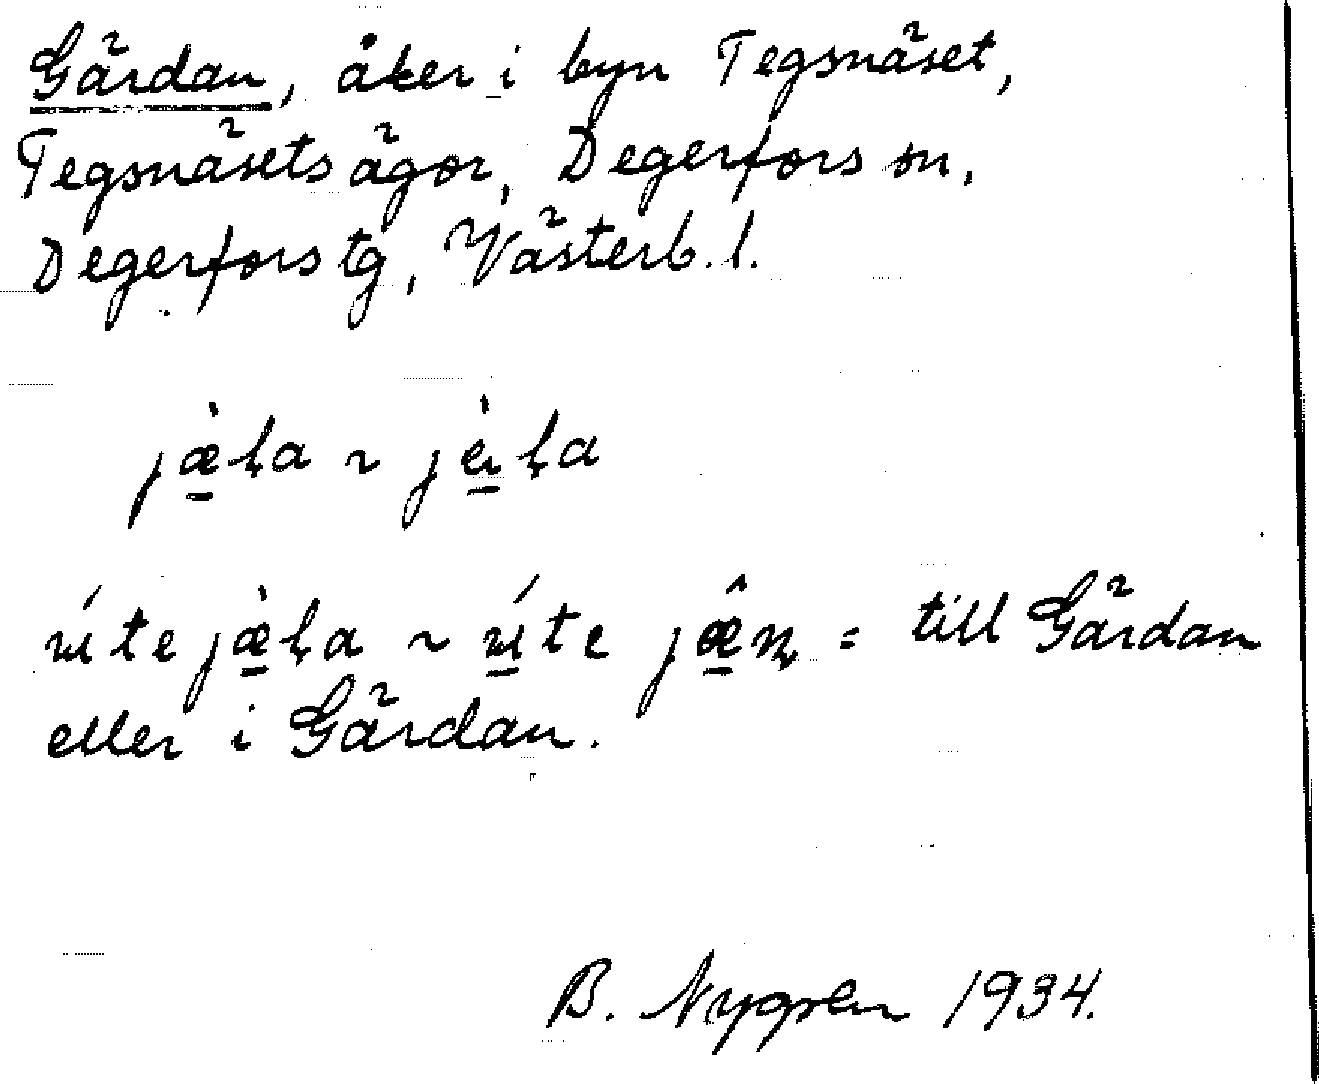 Gärdan, åker i byn Tegsnäset,
Tegsnäsets ägor, Degerfors sn,
Degerfors tg, Västerb. l.
till Gärdan
eller i Gärdan.
B. Nygren 1934.